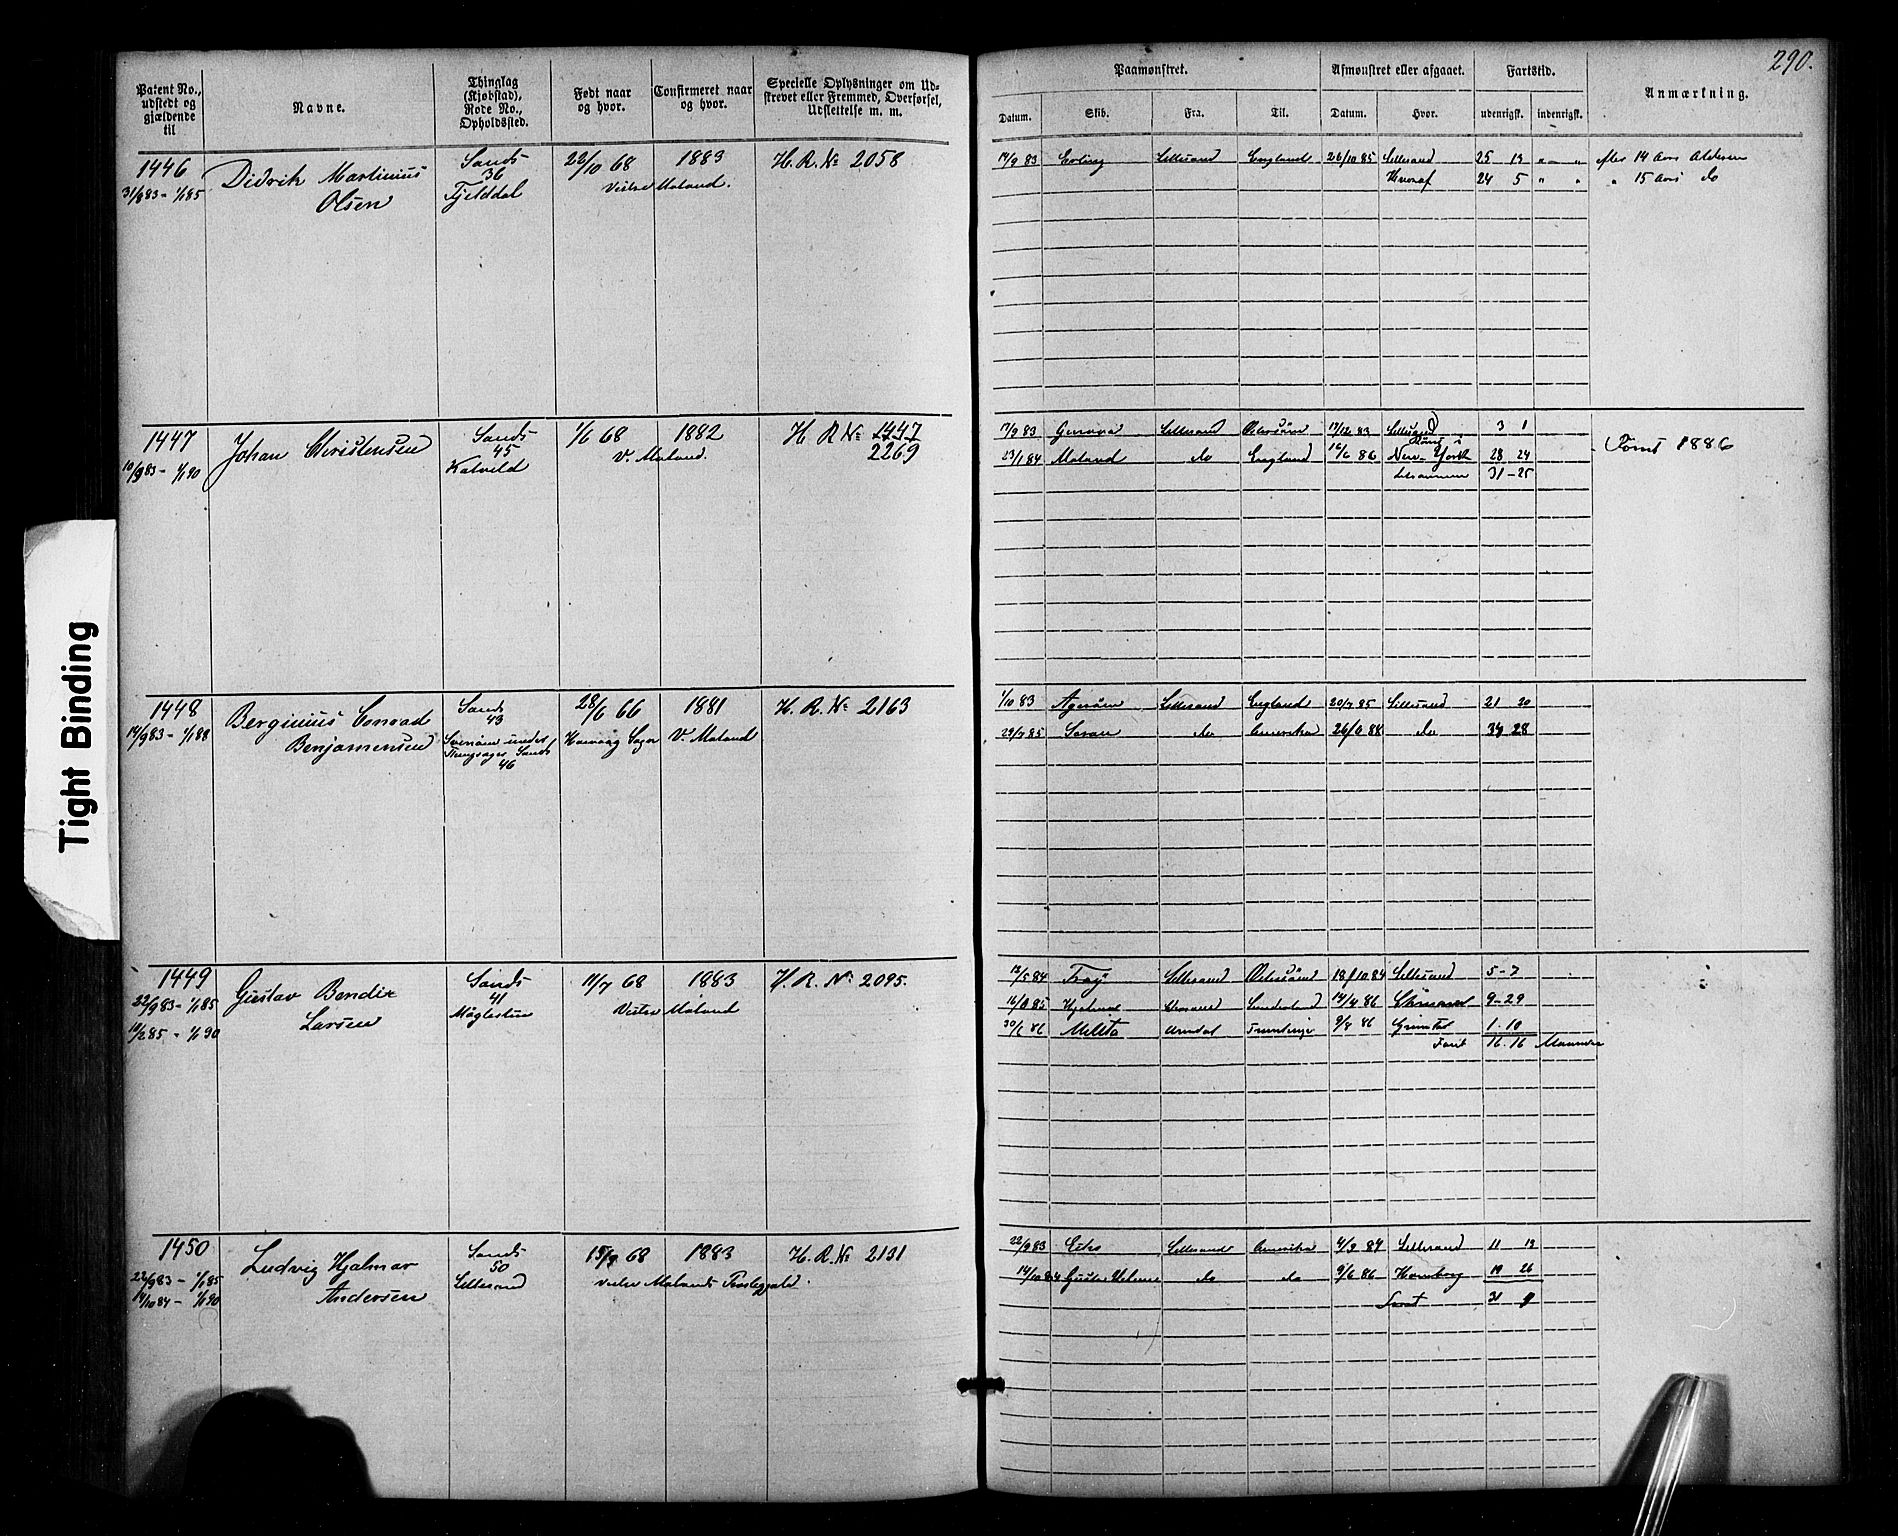 290.
Tight Binding
Patent No., udstedt og gjældende til
Navne.
Thinglag (Kjøbstad), Rode No., Opholdssted.
Født naar og hvor.
Confirmeret naar og hvor.
Specielle Oplysninger om Udskrevet eller Fremmed, Overførsel, Udslettelse m. m.
Paamønstret.
Afmønstret eller afgaaet.
Fartstid.
Anmærkning.
Datum.
Skib.
Fra.
Til.
Datum.
Hvor.
udenrigsk.
indenrigsk.
1446
31/8 83 - 1/1 85
Didrik Martinius
Olsen
Sands
36
Fjelddal
22/10 68
1883
Vestre Moland.
H. R. No 2058
14/9 83 Erling Lillesand England 26/10 85 Lillesand 25 13 " - " efter 14 Aars Alderen
Hvoraf 24 5 " " " 15 Aars do
1447
10/9 83 - 1/1 90
Johan Christensen
Sands
45
Kalvild
1/6 68
1882
V. Moland.
H. R. No 1447
2269
17/9 83 Lillesand Østersøen 17/12 83 Lillesand 3 1
Rømt i
23/1 84 Moland do England 86 New-York 28 24
tilsammen 31 - 25
Rømt 1886
1448
14/9 83 - 1/1 88
Berginius Conrad
Benjamensen
Sands
43
under
Sands
46
28/6 66
Sogn
1881
V. Moland
H. R. No 2163
1/10 83 Agerøen Lillesand England 20/7 85 Lillesand 21 20
29/7 85 do Amerika 26/6 88 do 34 28
1449
22/9 83 - 1/1 85
10/2 85 - 1/1 90
Gustav Bendix
Larsen
Sands
41
Møglestue
11/7 68
1883
Vestre Moland
H. R. No 2095.
13/5 84 Frøy Lillesand Østersøen 18/10 84 Lillesand 5 - 7
16/6 85 14/4 86 9 - 29
30/6 86 Melita Arendal 9/8 86 Grimstad 1. 10
16. 16 Maaneder
1450
22/9 83 - 1/1 85
14/10 84 - 1/1 90
Ludvig Hjalmar
Andersen
Sands
50
Lillesand
15/9 68
1883
Vestre Molands Præstegjeld
H. R. No 2131
22/9 83 Lillesand Amerika 4/9 84 Lillesand 11 13
14/10 84 do do 9/6 86 Hamburg 19 26
31 9